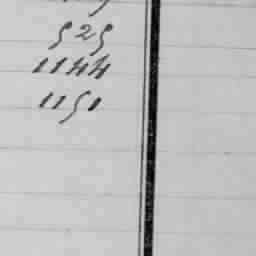 529
1144
1151